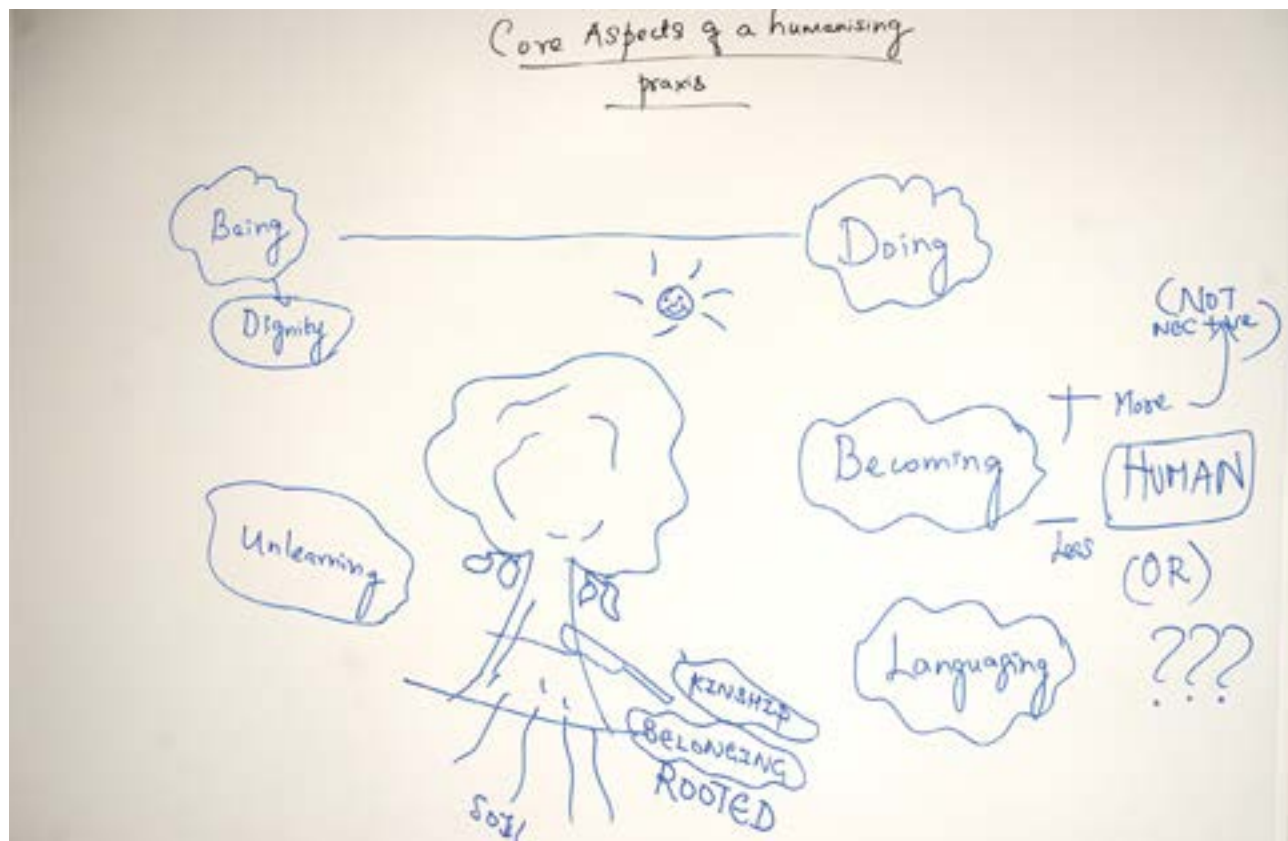 Core Aspects of a humanising
praxis
Being
Doing
Dignity
(NOT
More
Becoming
HUMAN
Less
Unlearning
(OR)
Languaging
???
KINSHIP
BELONGING
ROOTED
SOIL